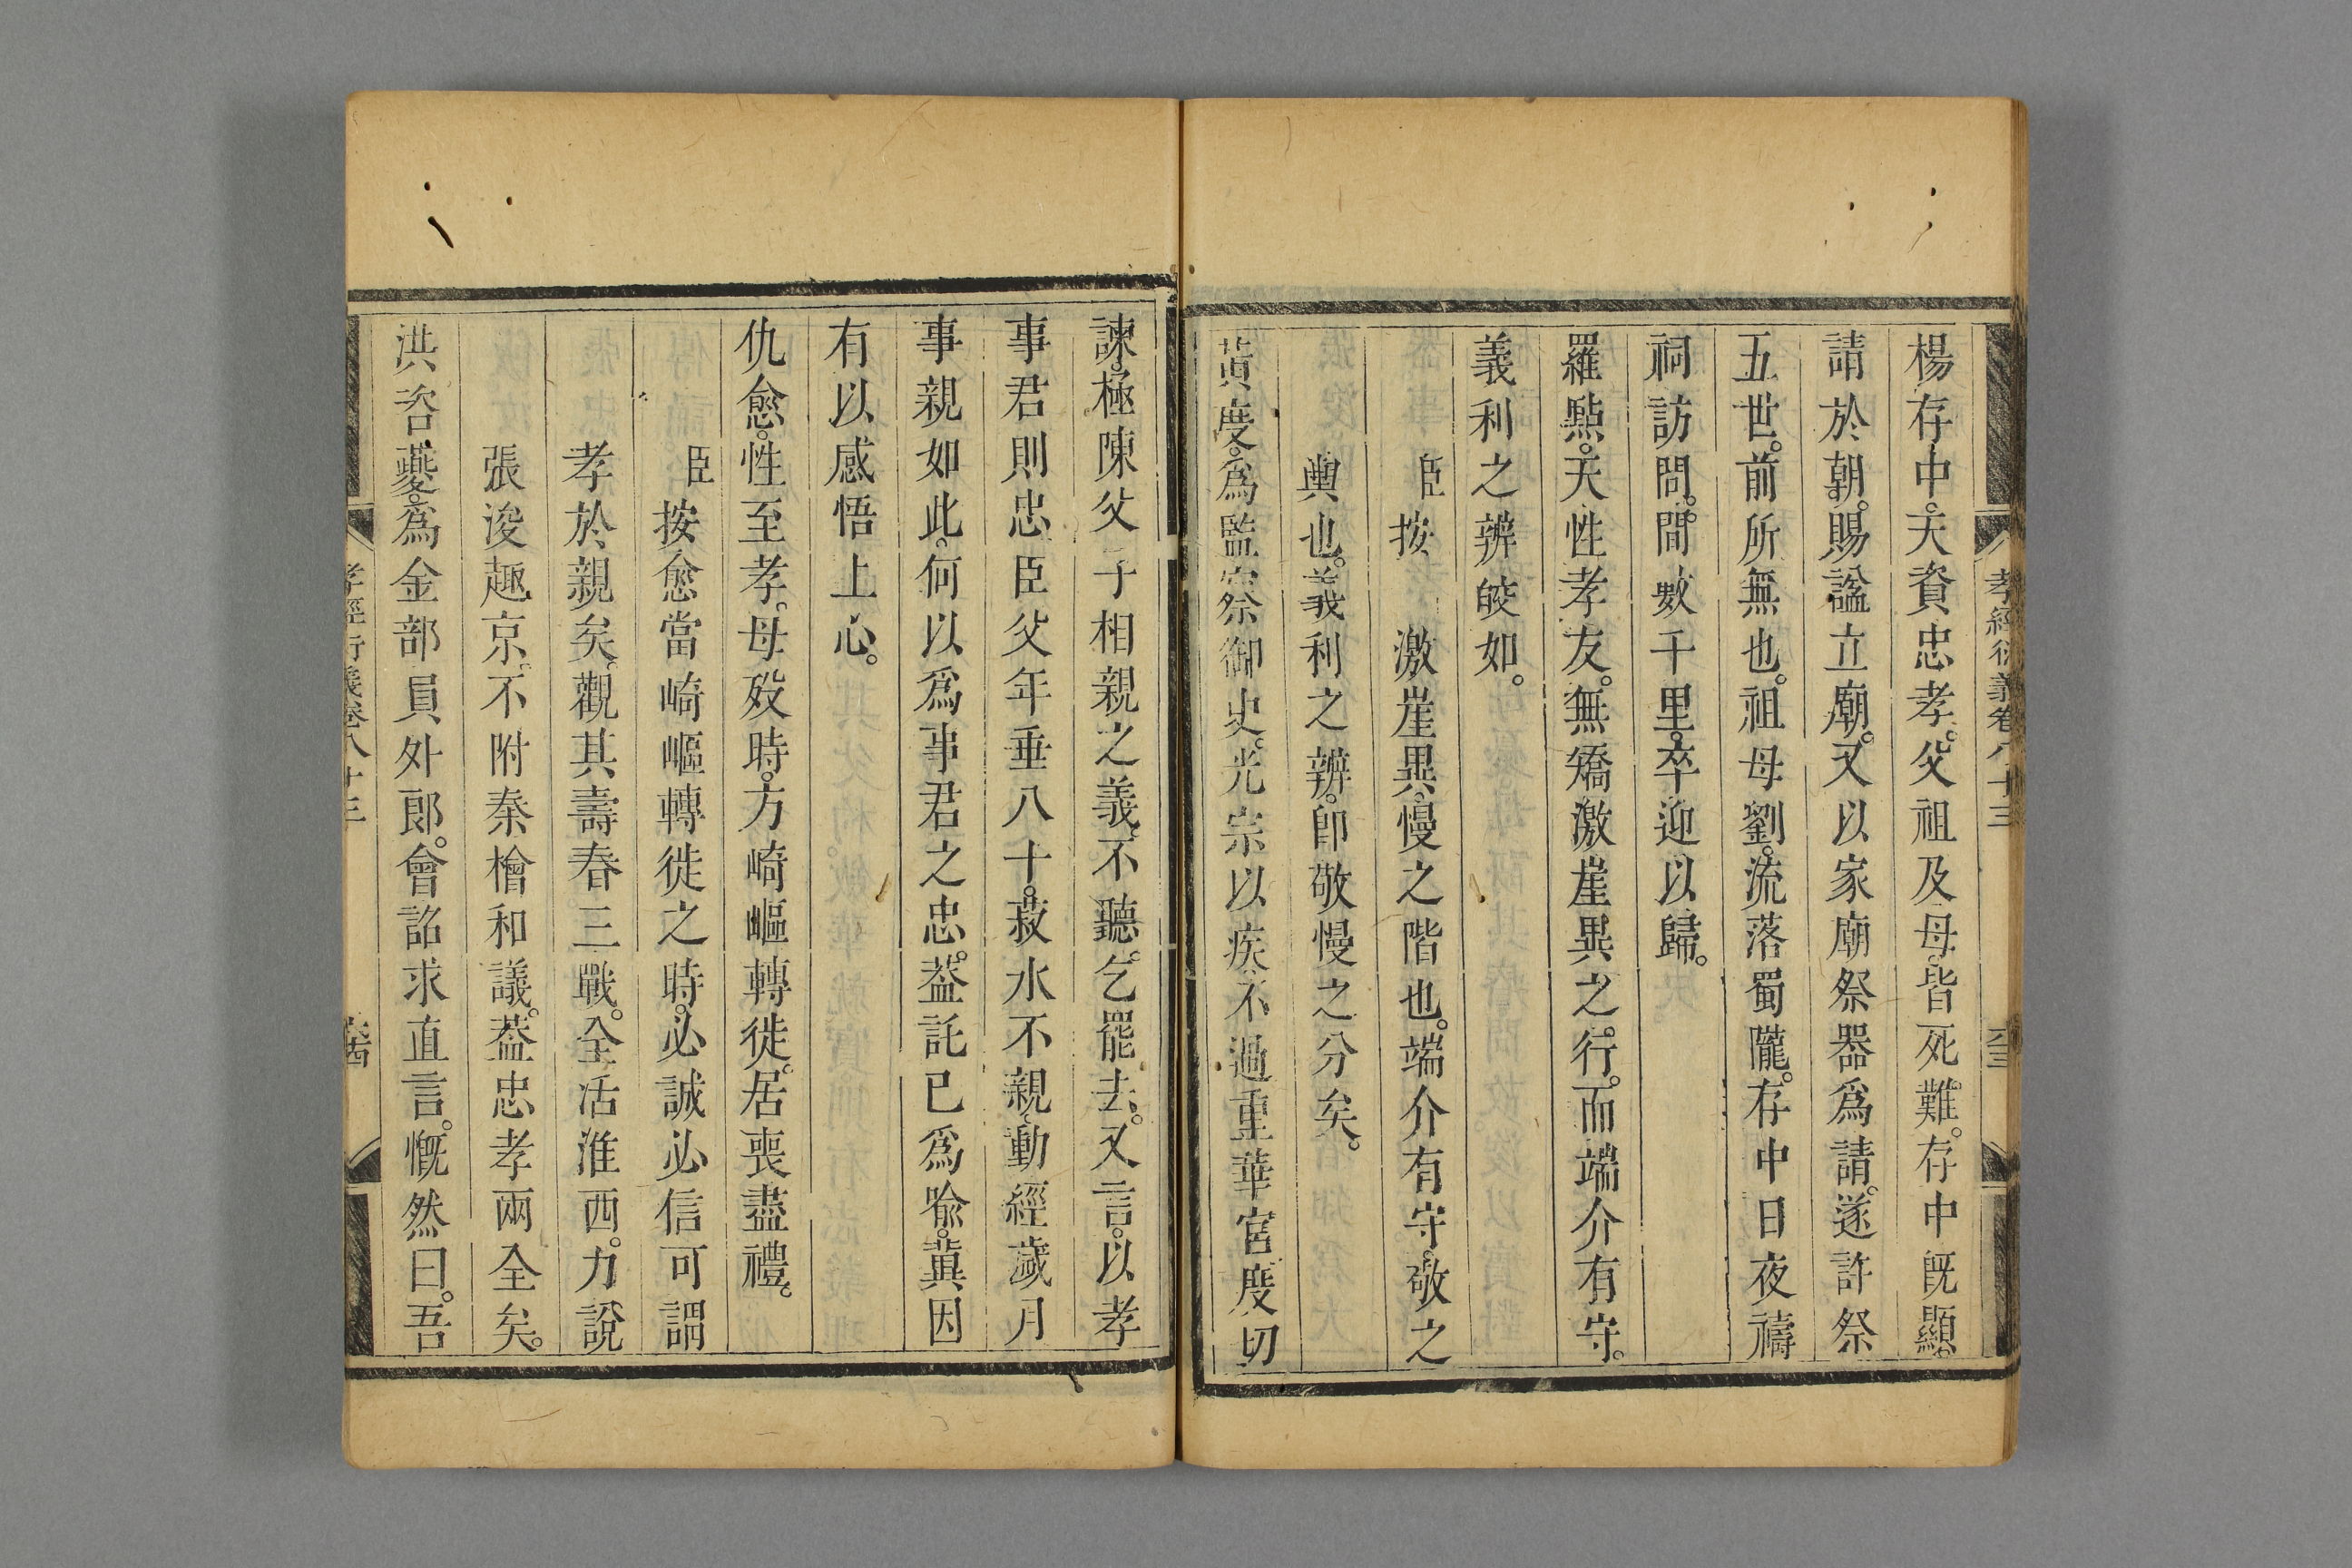 孝經衍義卷八十三
楊存中。天資忠孝。父祖及母。皆死難。存中旣顯。
請於朝。賜諡立廟。又以家廟祭器爲請。遂許祭
五世。前所無也。祖母劉。流落蜀隴。存中日夜禱
祠訪問。間數千里。卒迎以歸。
羅點。天性孝友。無矯激崖異之行。而端介有守。
義利之辨皎如。
臣按 激崖異。慢之階也。端介有守。敬之
輿也。義利之辨。卽敬慢之分矣。
黃度。爲監察御史。光宗以疾不過重華宮。度切
諫。極陳父子相親之義。不聽。乞罷去。又言。以孝
事君則忠。臣父年垂八十。菽水不親。動經歲月。
事親如此。何以爲事君之忠。葢託已爲喩。冀因
有以感悟上心。
仇悆。性至孝。母歿時。方崎嶇轉徙。居喪盡禮。
臣按悆當崎嶇轉徙之時。必誠必信。可謂
孝於親矣。觀其壽春三戰。全活淮西。力說
張浚趣京。不附秦檜和議。葢忠孝兩全矣。
洪咨夔。爲金部員外郞。會詔求直言。慨然曰。吾
孝經衍義卷八十三